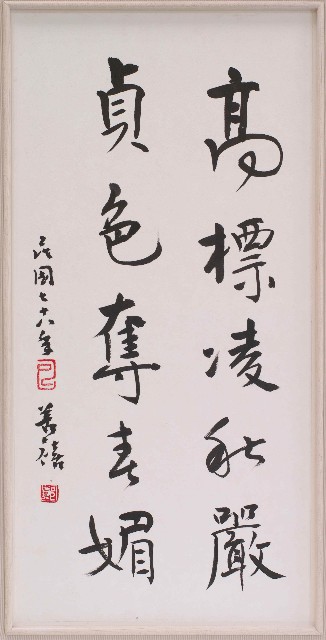 高標凌秋嚴
貞色奪春媚
民國七六年
善禧